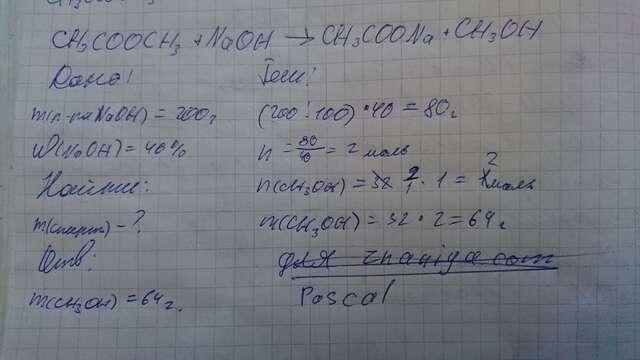 CH3COOCH3 + NaOH → CH3COONa + CH3OH
Дано:
m(р-ра NaOH) = 200г
W(NaOH) = 40%
Найти:
m(спирт) - ?
Отв:
m(CH3OH) = 64г.
(200:100)*40 = 80г
n = 80/40 = 2 моль
n(CH3OH) = 2/1 * 1 = 2 моль
m(CH3OH) = 32 * 2 = 64г
для znaniya com
Pascal